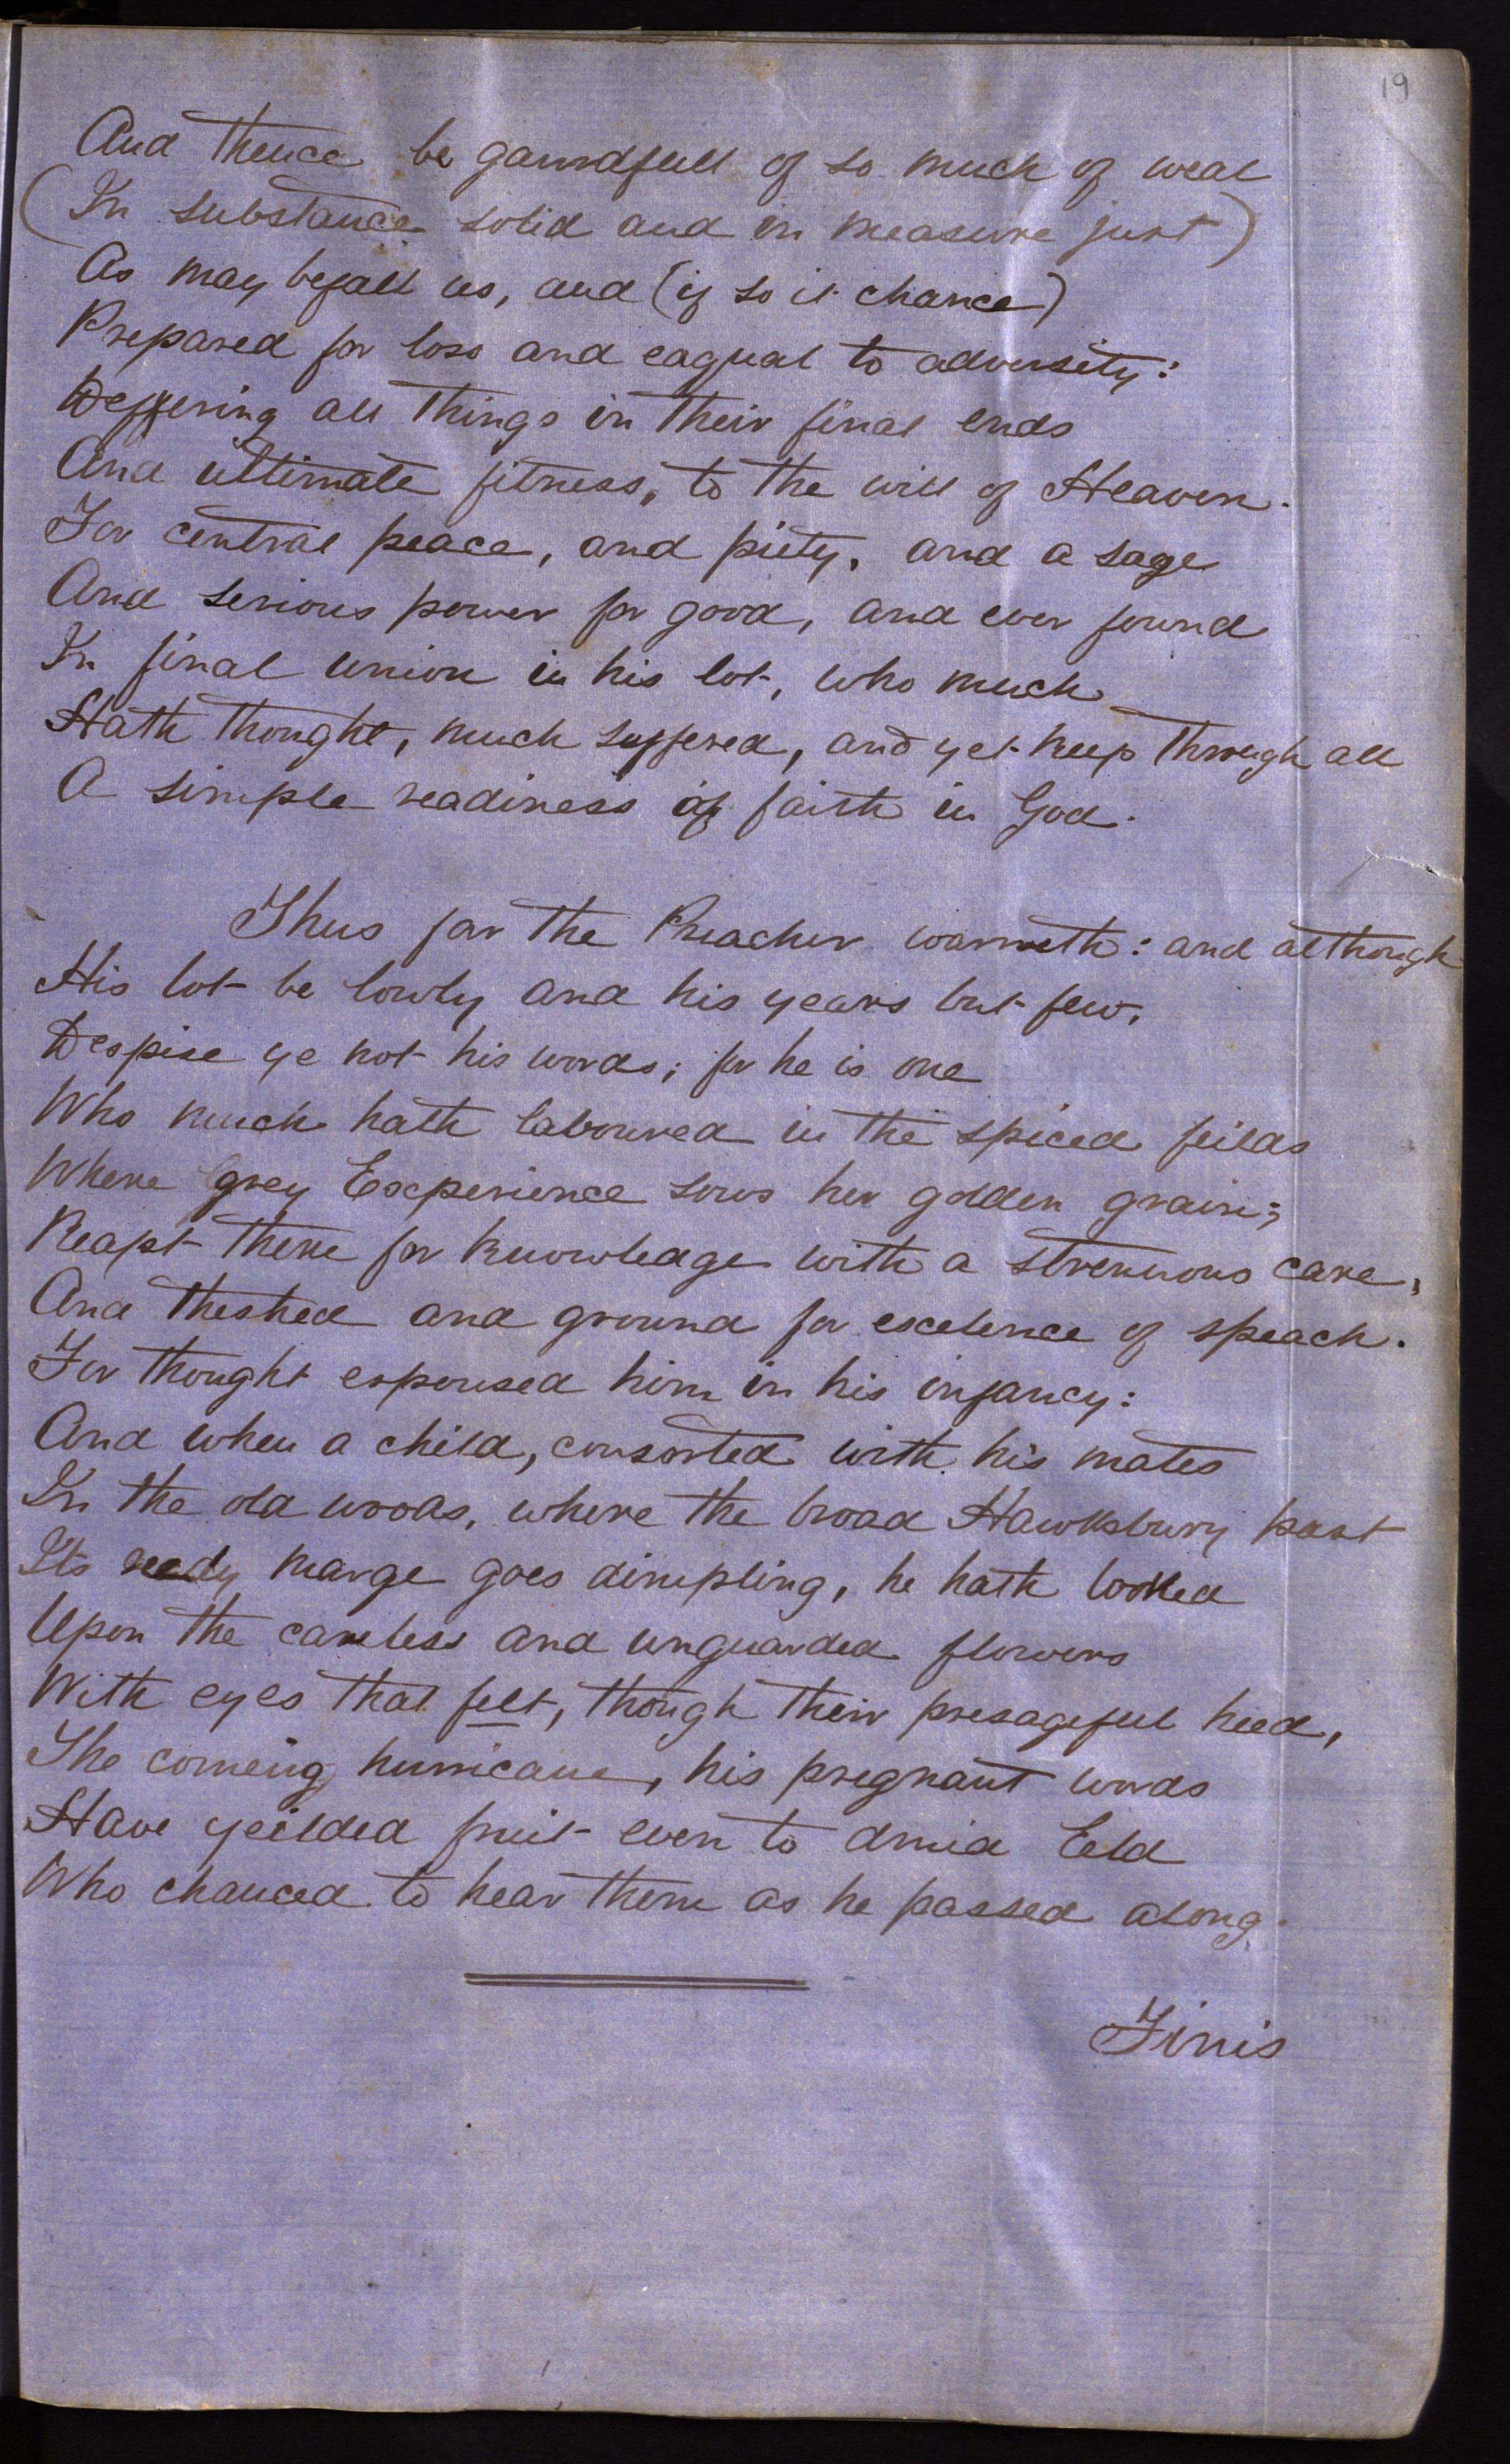 19
And thence be gaurdfull of so much of weal
(In substance solid and in measure just)
As may befall us, and (if so it chance)
Prepared for loss and eaqual to adversity:
Deffering all things in their final ends
And ultimate fitness, to the will of Heaven.
For central peace, and piety, and a sage
And serious power for good, and ever found
In final union in his lot, who much
Hath thought, much suffered, and yet keep through all
A simple readiness of faith in God.
Thus far the Preacher warneth: and although
His lot be lowly and his years but few,
Despise ye not his words; for he is one
Who much hath laboured in the spiced feilds
Where grey Experience sows her golden grain;
Reapt there for knowledge with a strenuous care,
And theshed and ground for excelence of speach.
For thought espoused him in his infancy:
And when a child, consorted with his mates
In the old woods, where the broad Hawksbury past
Its reedy marge goes dimpling, he hath looked
Upon the careless and unguarded flowers
With eyes that felt, though their presageful heed,
The coming hurricane, his pregnant words
Have yeilded fruit even to druid Eeld
Who chanced to hear them as he passed along.
Finis